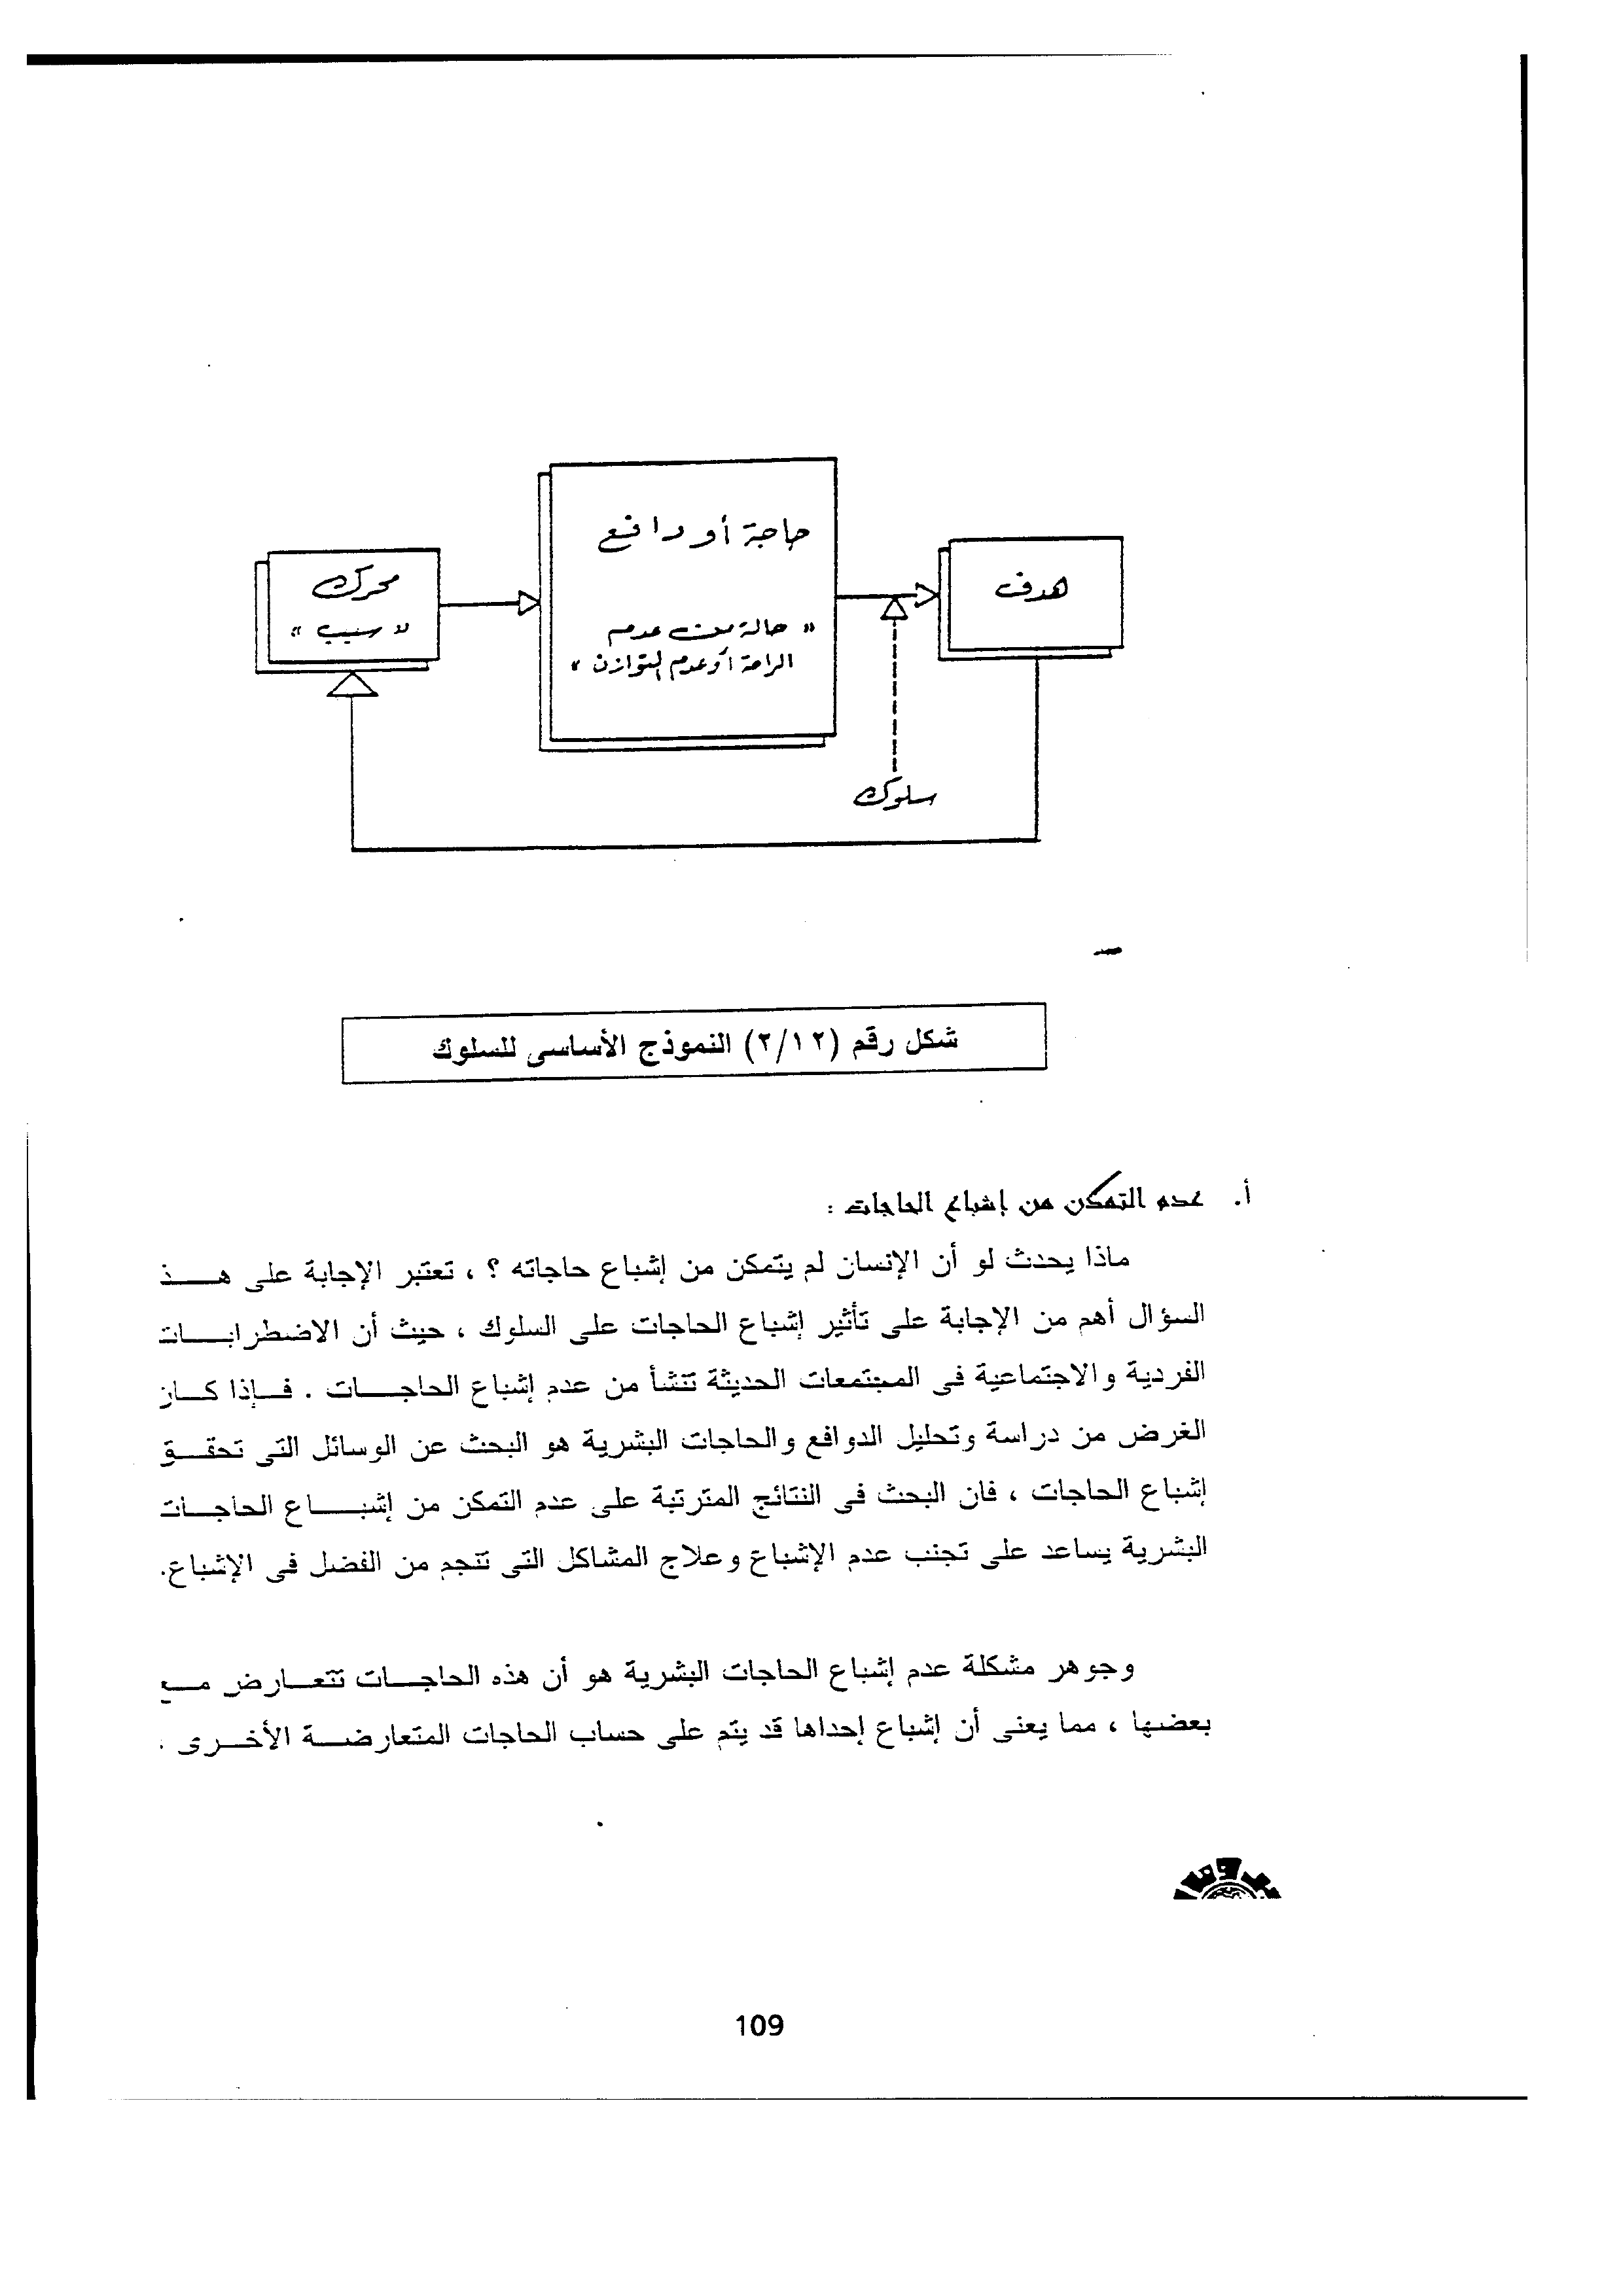 حاجة أو دافع
هدف
محرك
" حالة من عدم
" سبب "
الراحة أو عدم التوازن "
سلوك
شكل رقم (٢/١٢) النموذج الأساسى للسلوك
أ. عدم التمكن من إشباع الحاجات :
ماذا يحدث لو أن الإنسان لم يتمكن من إشباع حاجاته ؟ ، تعتبر الإجابة على هـــذ
السؤال أهم من الإجابة على تأثير إشباع الحاجات على السلوك ، حيث أن الاضطرابـــات
الفردية والاجتماعية فى المجتمعات الحديثة تنشأ من عدم إشباع الحاجـــات . فــإذا كــار
الغرض من دراسة وتحليل الدوافع والحاجات البشرية هو البحث عن الوسائل التى تحقــق
إشباع الحاجات ، فان البحث فى النتائج المترتبة على عدم التمكن من إشبـــاع الحاجــات
البشرية يساعد على تجنب عدم الإشباع وعلاج المشاكل التى تنجم من الفضل فى الإشباع.
وجوهر مشكلة عدم إشباع الحاجات البشرية هو أن هذه الحاجــات تتعــارض مــع
بعضها ، مما يعنى أن إشباع إحداها قد يتم على حساب الحاجات المتعارضــة الأخــرى .
109